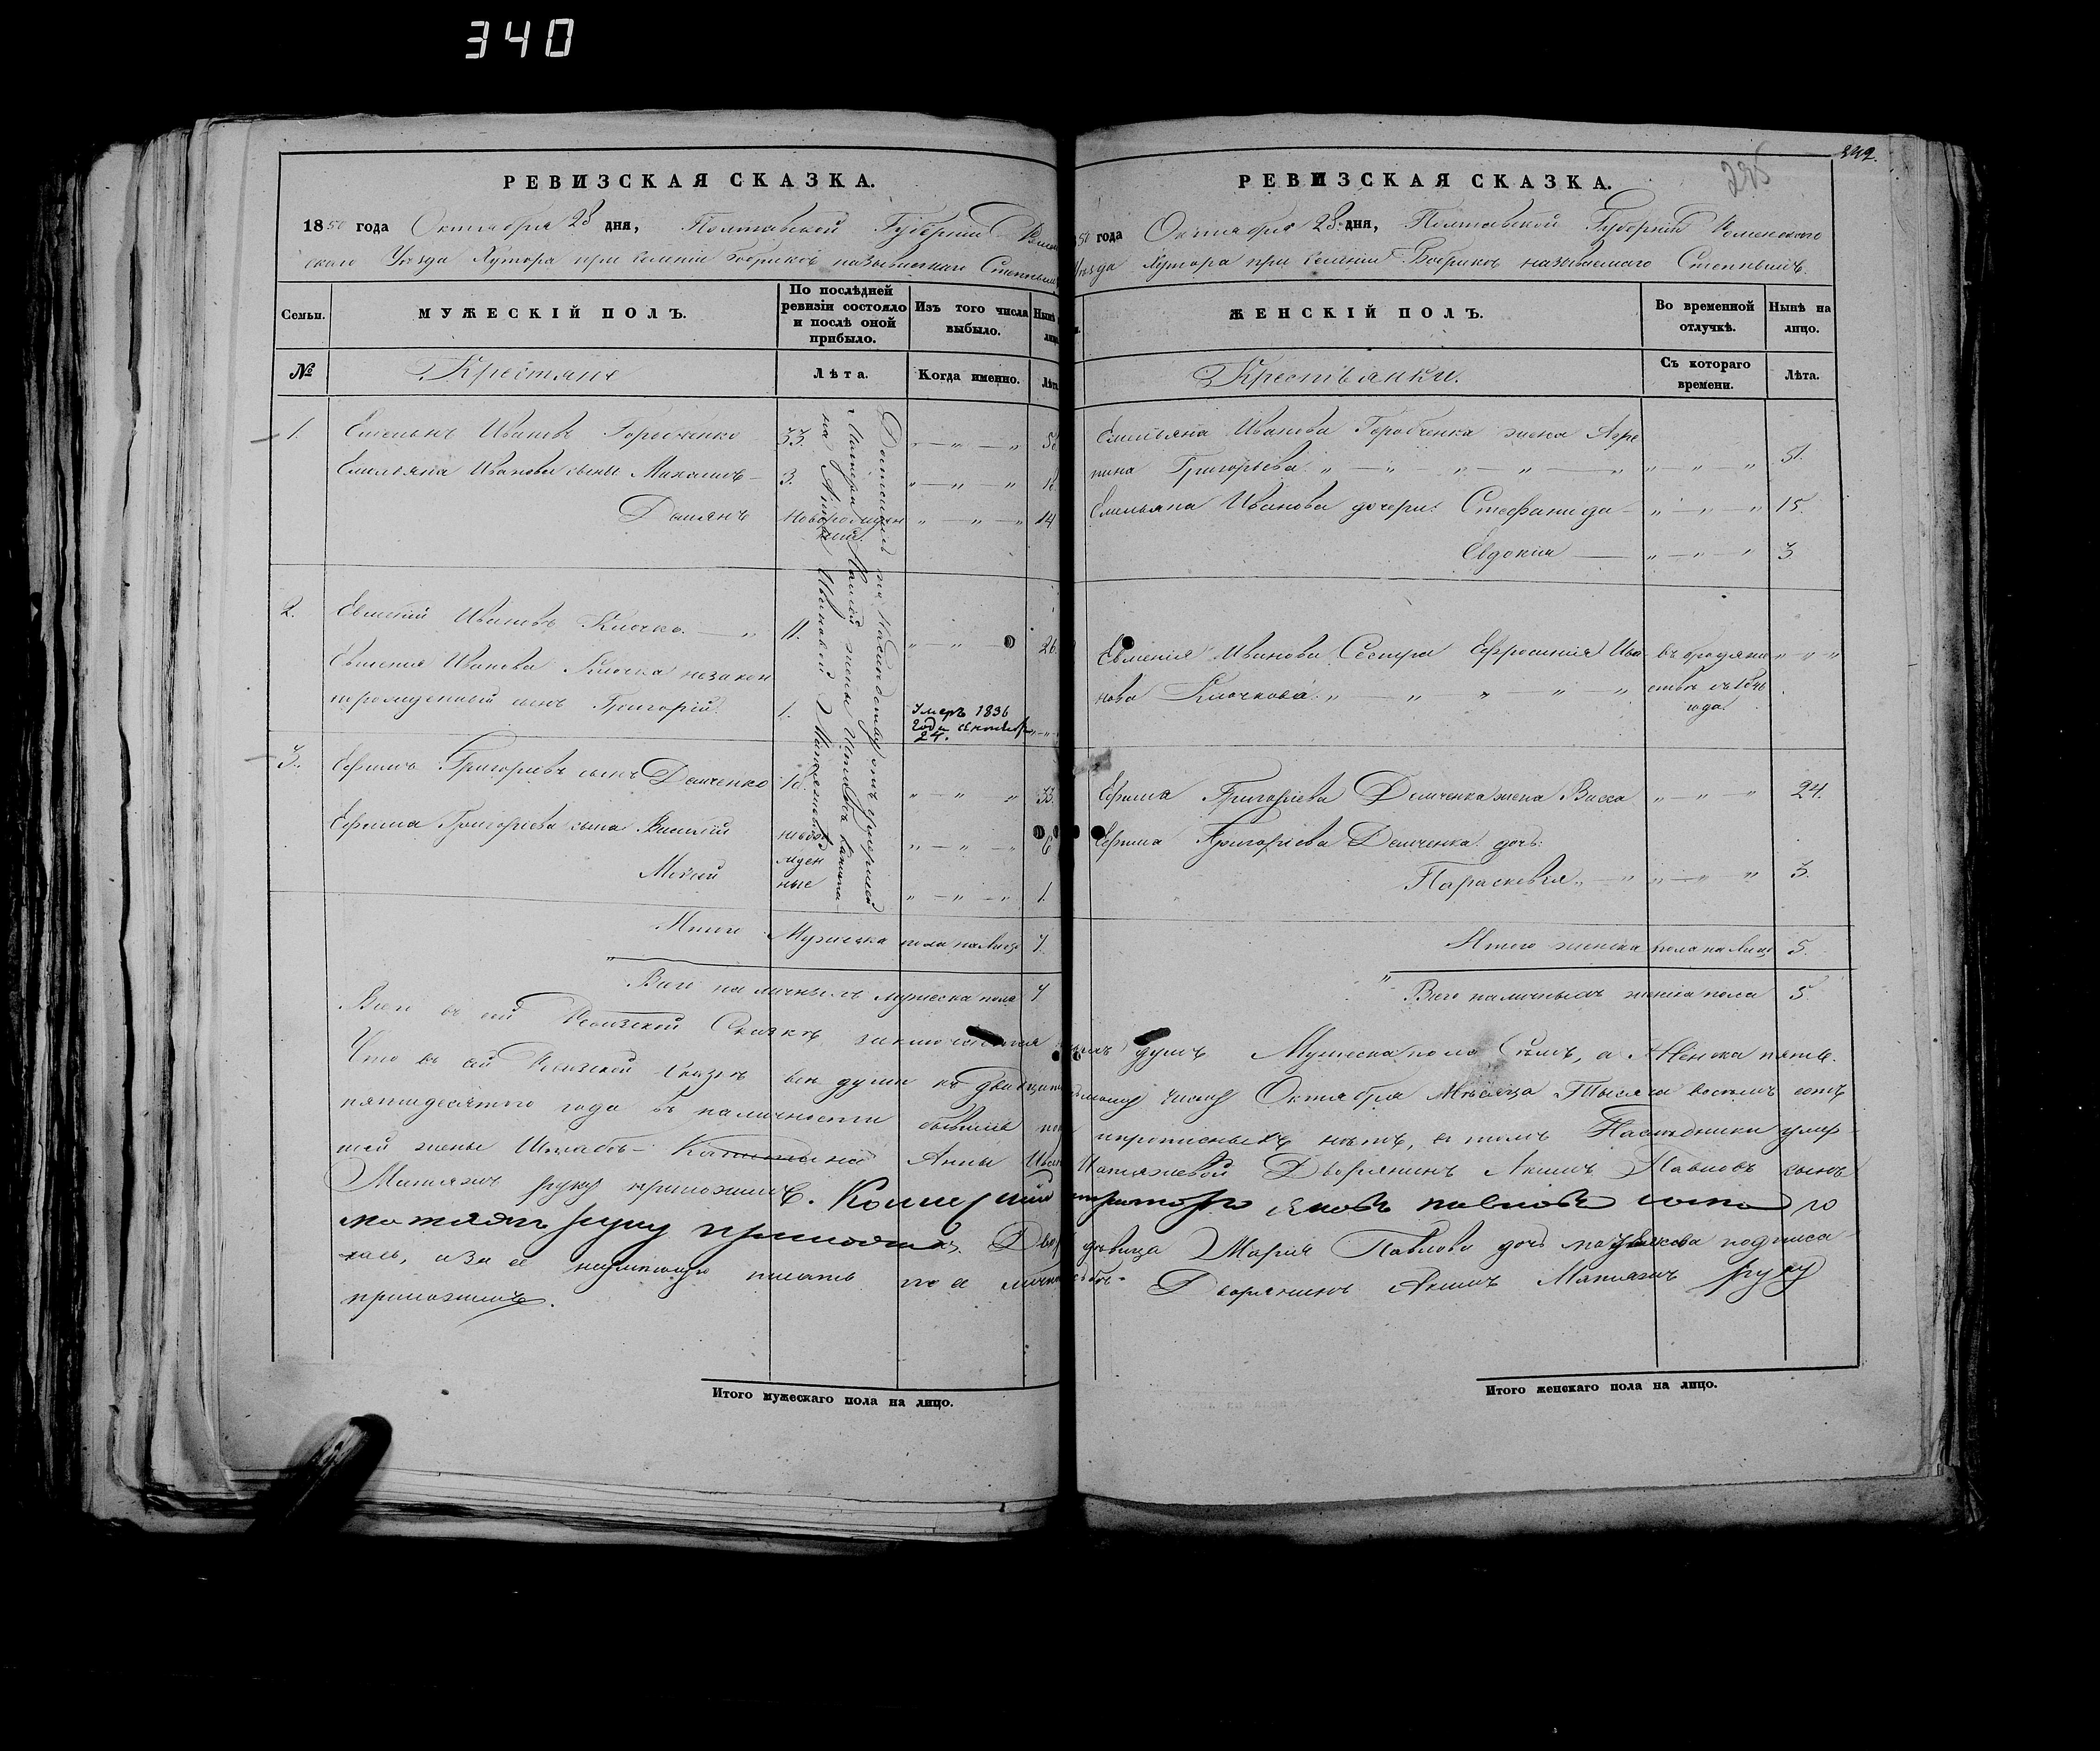 340
РЕВИЗСКАЯ СКАЗКА.
1850 года Октября 28 дня, Полтавской Губернии Ромен
скаго Уѣзда Хутора при селеніи Бобрикѣ называемаго Степнымъ
Семьи.
МУЖЕСКІЙ ПОЛЪ.
По послѣдней
ревизіи состояло
и послѣ оной
прибыло.
Изъ того числа
выбыло.
Нынѣ
лицо
№
Крестяне
Лѣта.
Когда именно.
Лѣта
1. Емельянъ Ивановъ Горобченко 33.
Емельяна Иванова сыны Михаилъ 3.
Демянъ новорожден 14
ный
2. Евменій Ивановъ Клочко 11. 26.
Евменія Иванова Клочка незакон
норожденный сынъ Григорій 1. Умеръ 1836
года
24.
3. Ефимъ Григорьевъ сынъ Демченко 18. 33.
Ефима Григоріева сына Василій новоро
жден
Мойсей ные 1.
Достались по наслѣдству отъ умершей
матери нашей жены Штабсъ Капита
на Анны Ивановой Матяжевой
Итого Мужеска пола на лицо 7.
Всего наличныхъ мужеска пола 7
РЕВИЗСКАЯ СКАЗКА.
242.
50 года Октября 28 дня, Полтавской Губерніи Роменскаго
Уѣзда Хутора при селеніи Бобрикѣ называемаго Степнымъ.
ЖЕНСКІЙ ПОЛЪ.
Во временной
отлучкѣ.
Нынѣ на
лицо.
Крестьянки.
Съ котораго
времени.
Лѣта.
Емельяна Иванова Горобченка жена Агре
пина Григорьева 51.
Емельяна Иванова дочери: Стефанида 15.
Евдокія 3
Евменія Иванова Сестра Ефросинія Ива въ бродяже
нова Клочкова ствѣ съ
года.
Ефима Григоріева Демченка жена Васса 24.
Ефима Григоріева Демченка дочь:
Параскевія 3.
Итого женска пола на лицо 5.
Всего наличныхъ женска пола 5.
Всего въ сей Ревизской Сказкѣ заключается душъ Мужеска пола Семь, а Женска пять.
Что въ сей Ревизской Сказкѣ всѣ души къ двадцать осьмому числу Октября Мѣсяца Тысяча восемь сотъ
пятидесятаго года въ наличности бывшіе прописныхъ нѣтъ, въ томъ Наслѣдники умер
шей жены Штабсъ-Капитана Анны Иван Матяжевой Дворянинъ Акимъ Павловъ сынъ
Матяжъ руку приложилъ. Яковъ Павловъ сынъ
руку приложилъ. Двор дѣвица Марія Павлова дочь подписа
лась, а за ее неумѣющую писать по ея личной прозбѣ Дворянинъ Акимъ Матяжъ руку
приложилъ.
Итого мужескаго пола на лицо.
Итого женскаго пола на лицо.